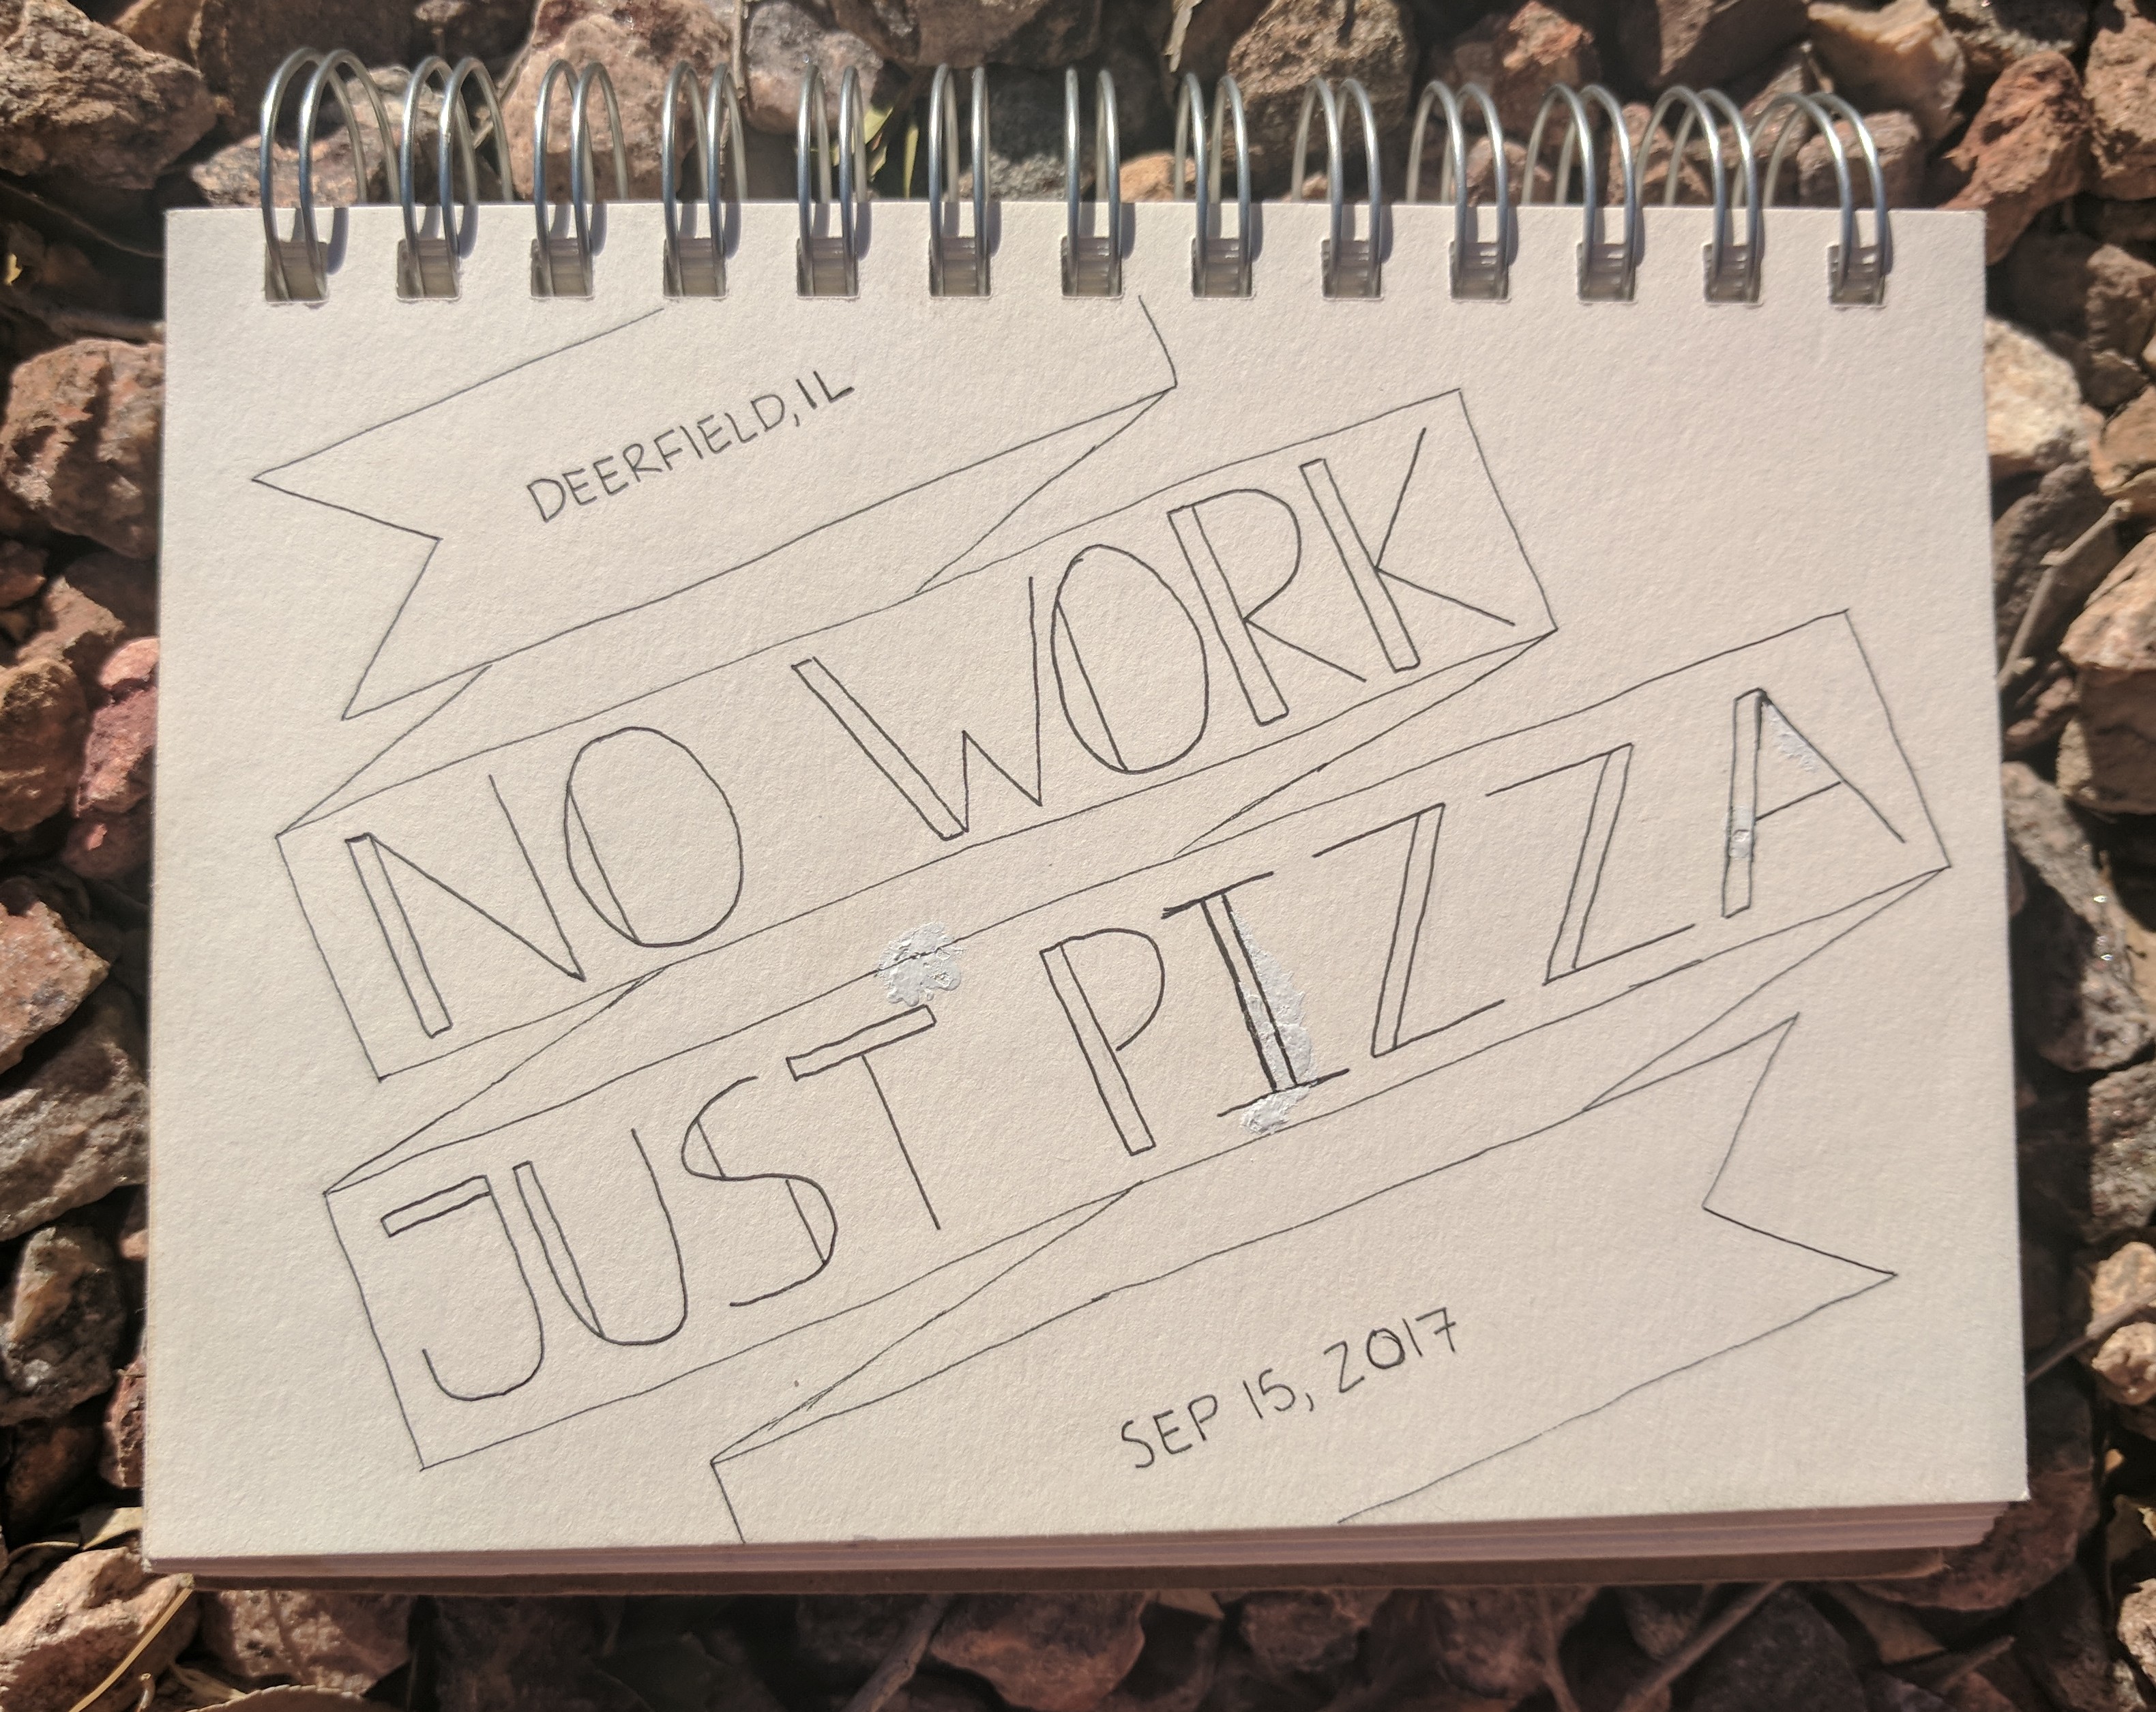 DEERFIELD, IL
NO WORK
JUST PIZZA
SEP 15, 2017